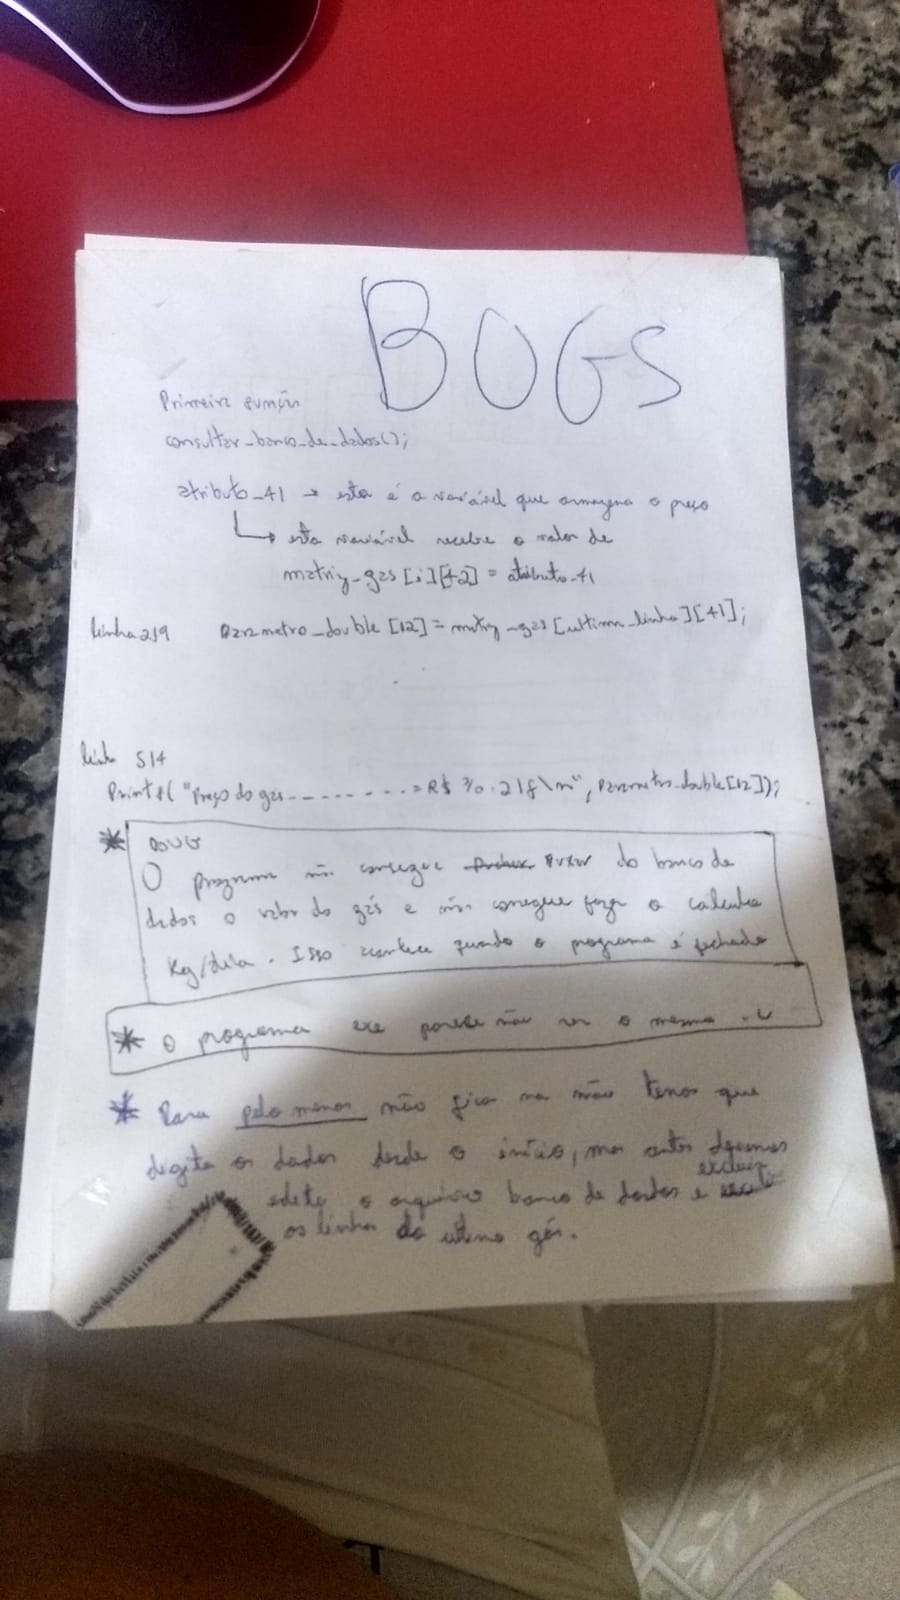 BOGS
Primeira função
consultar_banco_de_dados();
atributo_41 → esta é a variável que armazena o preço
↳ esta variável recebe o valor de
matriz_gas[i][42] = atributo_41
linha 219 Parametro_double[12] = matriz_gas[ultima_linha][41];
linha 514
Printf("Preço do gas.........=R$ %.2lf\n", Parametro_double[12]);
*
O programa não consegue puxar do banco de
dados o valor do gás e não consegue fazer o calculo
Kg/dia. Isso acontece quando o programa é fechado
* O programa exe parece não ser o mesmo
* Para pelo menos não fica na mão temos que
digita os dados desde o início, mas antes devemos
edita o arquivo banco de dados e excluir
as linhas do ultimo gás.